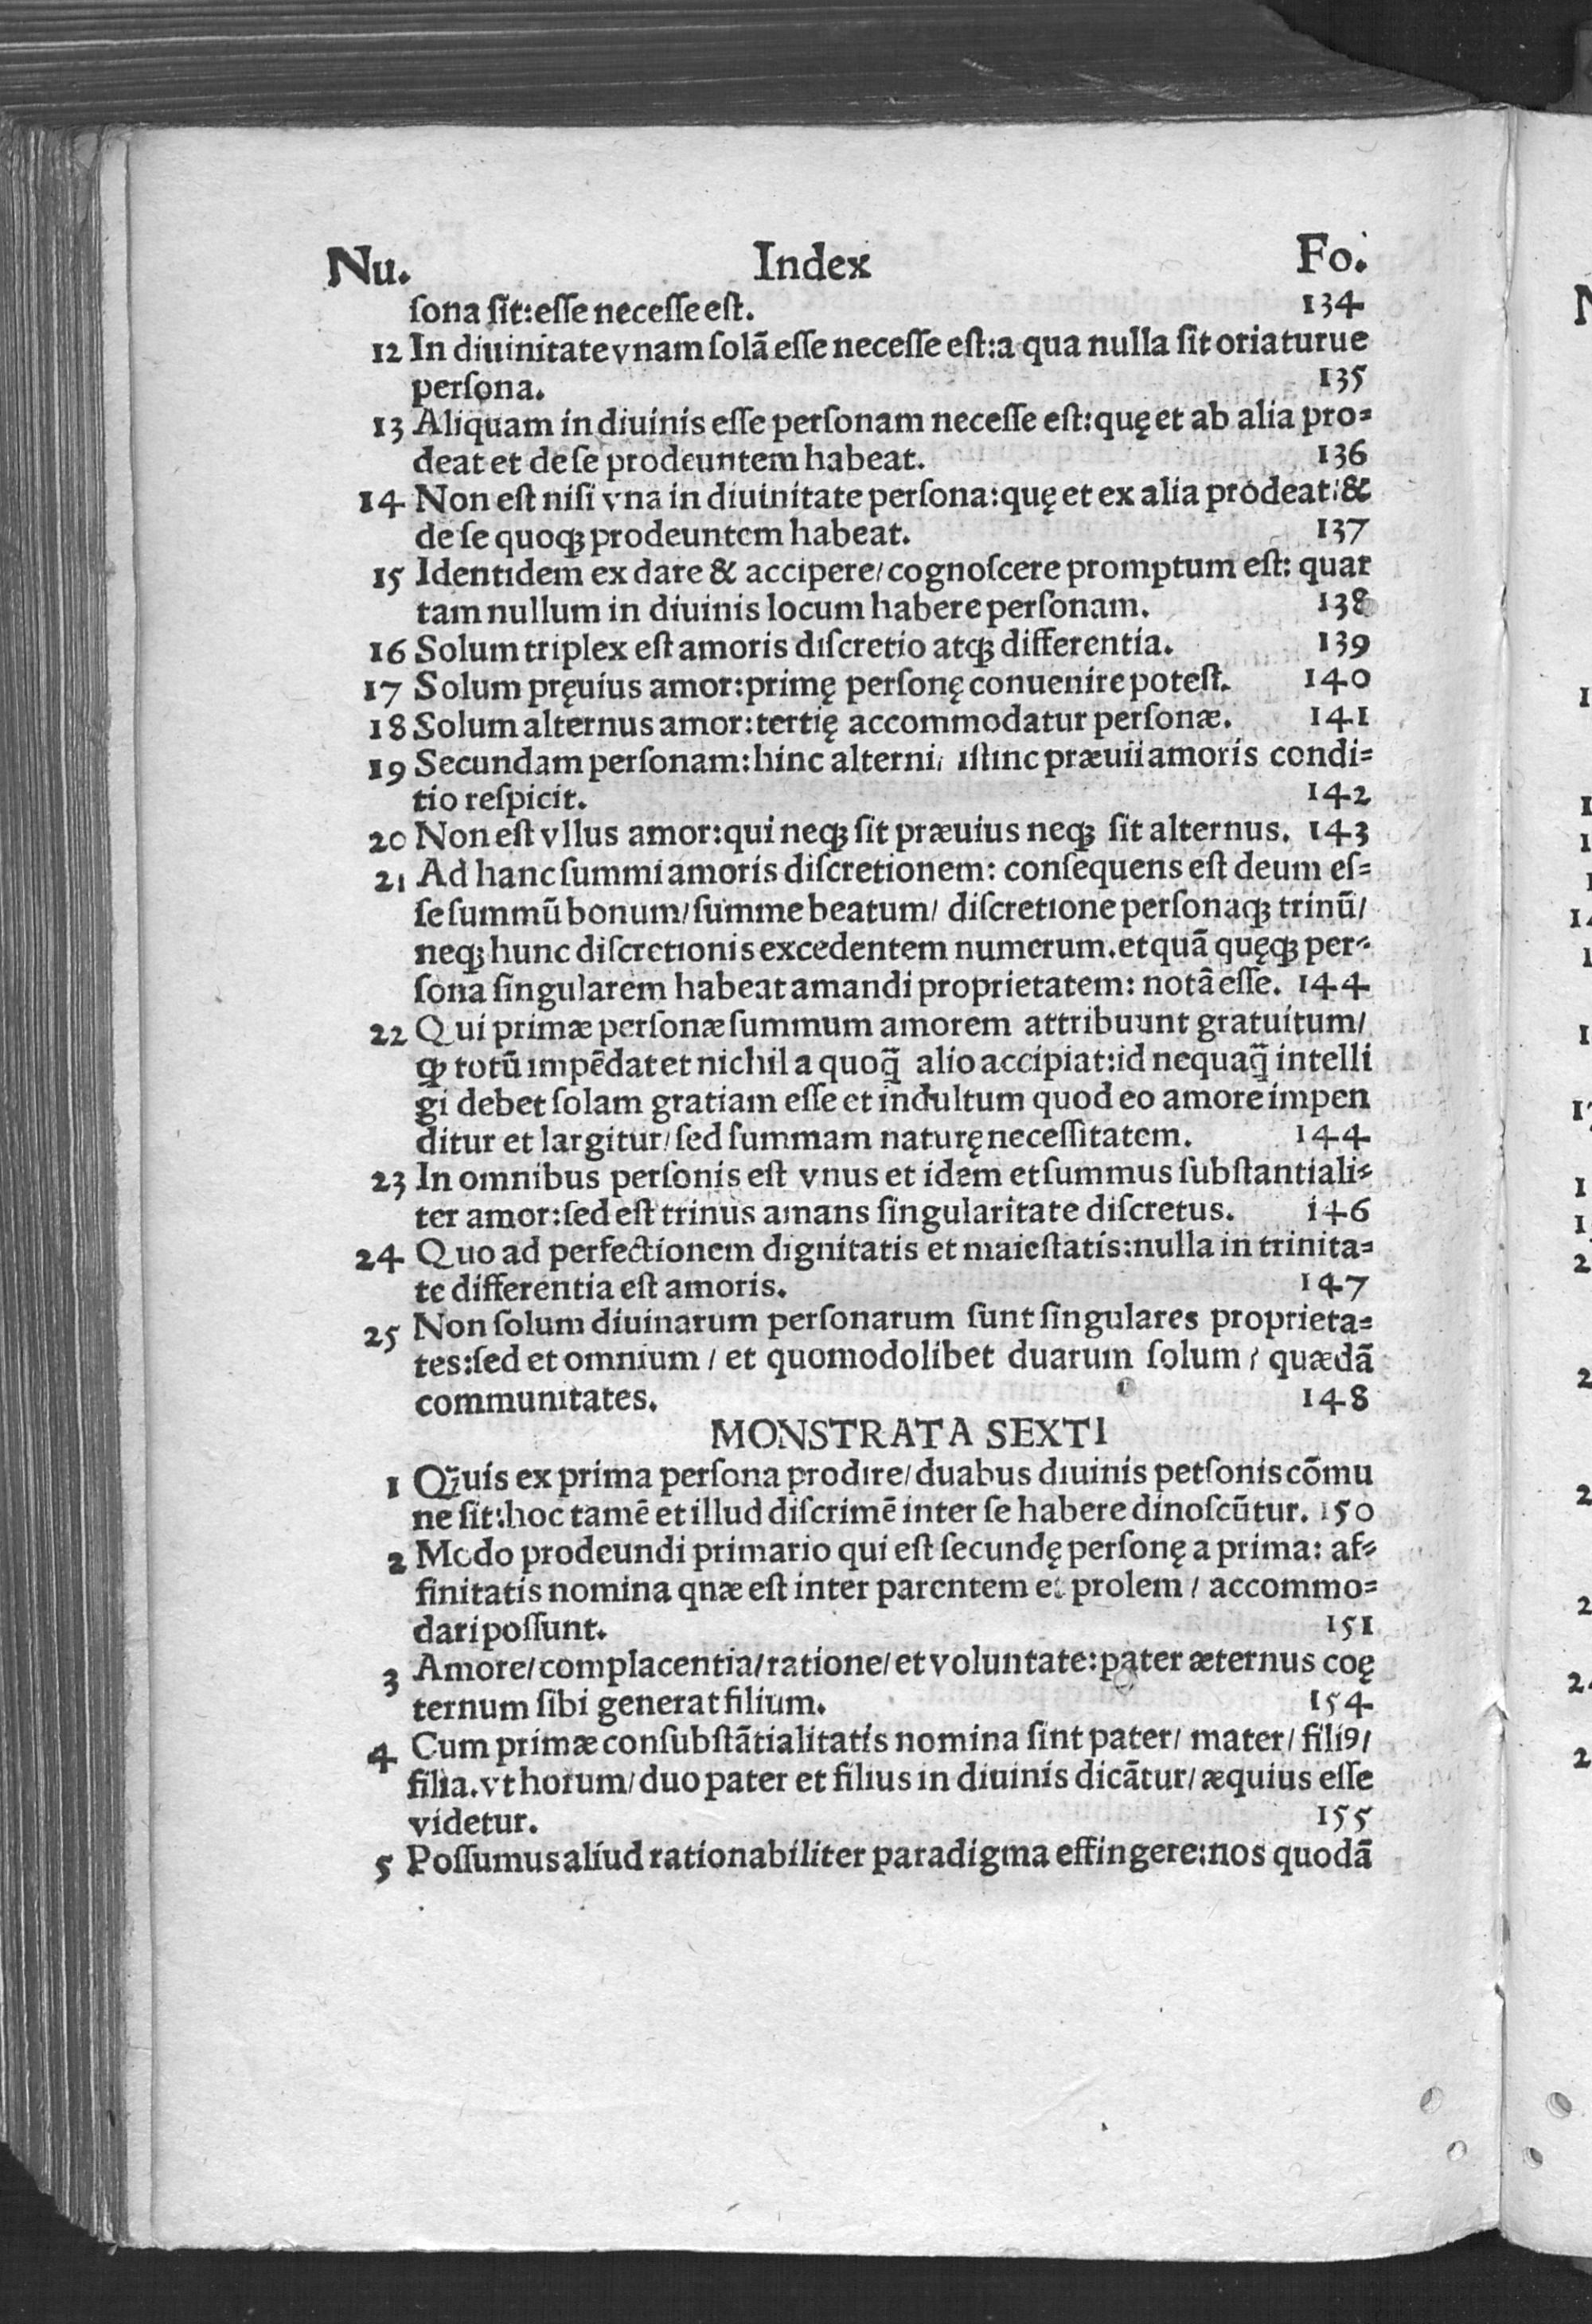 Nu. Index Fo.
sona sit:esse necesse est. 134
12 In diuinitate vnam solā esse necesse est:a qua nulla sit oriaturue
persona. 135
13 Aliquam in diuinis esse personam necesse est:quę et ab alia pro=
deat et de se prodeuntem habeat. 136
14 Non est nisi vna in diuinitate persona:quę et ex alia prodeat:&
de se quoqꝫ prodeuntem habeat. 137
15 Identidem ex dare & accipere/cognoscere promptum est: quar
tam nullum in diuinis locum habere personam. 138
16 Solum triplex est amoris discretio atqꝫ differentia. 139
17 Solum pręuius amor:primę personę conuenire potest. 140
18 Solum alternus amor:tertię accommodatur personæ. 141
19 Secundam personam:hinc alterni/ istinc præuii amoris condi=
tio respicit. 142
20 Non est vllus amor:qui neqꝫ sit præuius neqꝫ sit alternus. 143
21 Ad hanc summi amoris discretionem: consequens est deum es=
se summū bonum/summe beatum/ discretione personaqꝫ trinū/
neqꝫ hunc discretionis excedentem numerum.et quā quęqꝫ per=
sona singularem habeat amandi proprietatem: notā esse. 144
22 Qui primæ personæ summum amorem attribuunt gratuitum/
ꝙ totū impēdat et nichil a quoq̄ alio accipiat:id nequaq̄ intelli
gi debet solam gratiam esse et indultum quod eo amore impen
ditur et largitur/sed summam naturę necessitatem. 144
23 In omnibus personis est vnus et idem et summus substantiali=
ter amor:sed est trinus amans singularitate discretus. 146
24 Quo ad perfectionem dignitatis et maiestatis:nulla in trinita=
te differentia est amoris. 147
25 Non solum diuinarum personarum sunt singulares proprieta=
tes:sed et omnium / et quomodolibet duarum solum / quædā
communitates. 148
MONSTRATA SEXTI
1 Q̄uis ex prima persona prodire/duabus diuinis petsonis cōmu
ne sit:hoc tamē et illud discrimē inter se habere dinoscūtur. 150
2 Modo prodeundi primario qui est secundę personę a prima: af=
finitatis nomina qnæ est inter parentem et prolem / accommo=
dari possunt. 151
3 Amore/complacentia/ratione/et voluntate:pater æternus coę
ternum sibi generat filium. 154
4 Cum primæ consubstātialitatis nomina sint pater/ mater/ filiꝰ/
filia.vt horum/duo pater et filius in diuinis dicātur/æquius esse
videtur. 155
5 Possumus aliud rationabiliter paradigma effingere:nos quodā